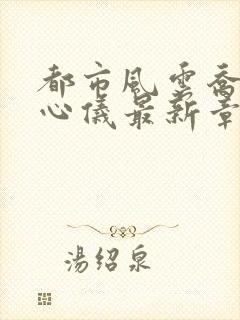 都市風雲喬
心儀最新章
湯紹泉